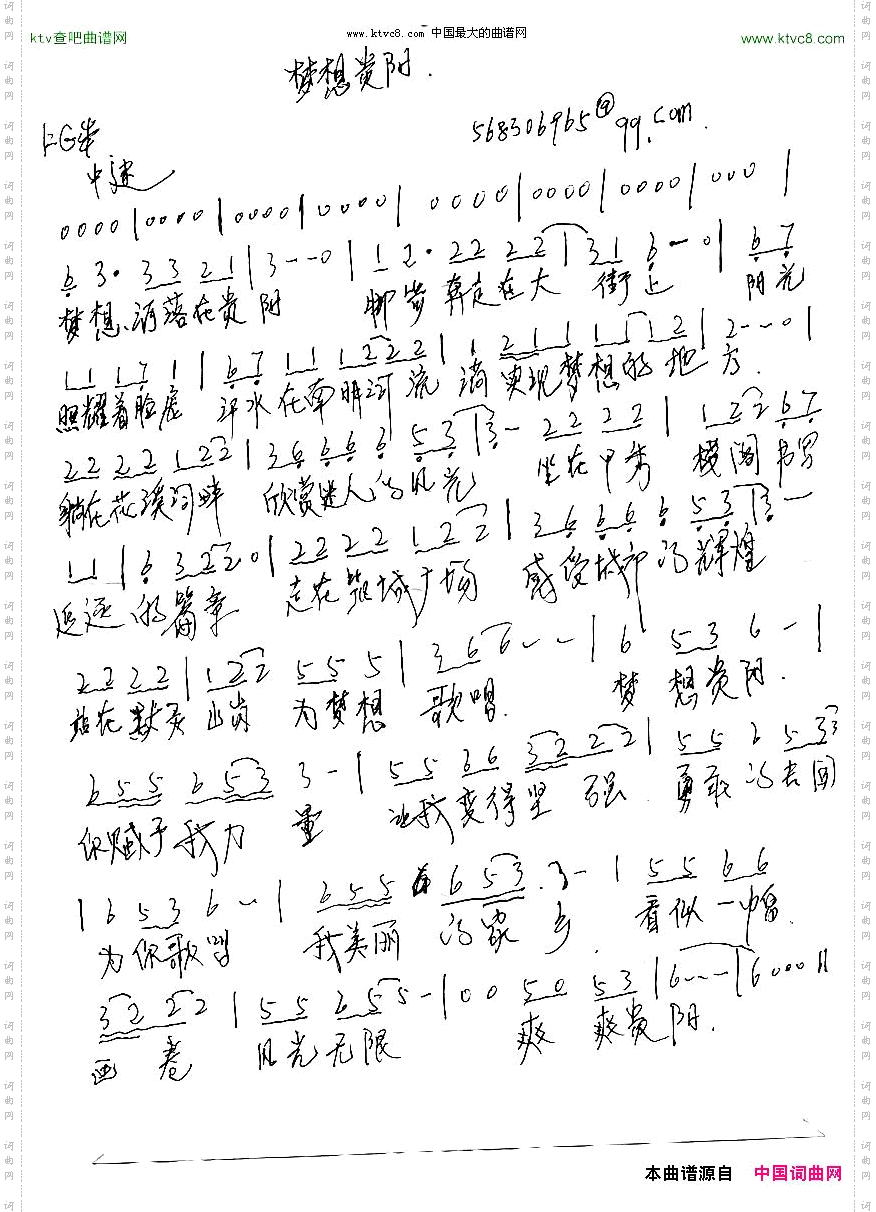 www.ktvc8.com 中国最大的曲谱网
ktv查吧曲谱网
www.ktvc8.com
梦想贵阳.
568306965@qq.com.
中速
0000|0000|0000|0000| 0000|0000|0000|000|
6 3· 33 21|3--0|1 2· 22 22|31 6--0|67
梦想洒落在贵阳 脚步奔走在大街上 阳光
11 17 1|67 11 1222|1 211 11 12|2--0|
照耀着脸庞 汗水在南明河流淌 实现梦想的地方.
22 22 122|36 66 6 53|3- 22 22|122 67
躺在花溪河畔 欣赏迷人的风光 坐在甲秀楼阁书写
11|6 322 0|22 22 122|36 66 6 53|3-
追逐的篇章 走在筑城广场 感受城市的辉煌
22 22|122 55 5|366--|6 53 6-|
站在黔灵山岗 为梦想歌唱. 梦想贵阳.
655 653 3-|55 66 32 22|55 6 533
你赋予我力量 让我变得坚强 勇敢的去闯
|6 53 6-|655 653 3-|55 66
为你歌唱 我美丽的家乡 看似一幅
32 22|55 655-|00 50 53|6---|6000||
画卷 风光无限 爽 爽贵阳.
本曲谱源自 中国词曲网